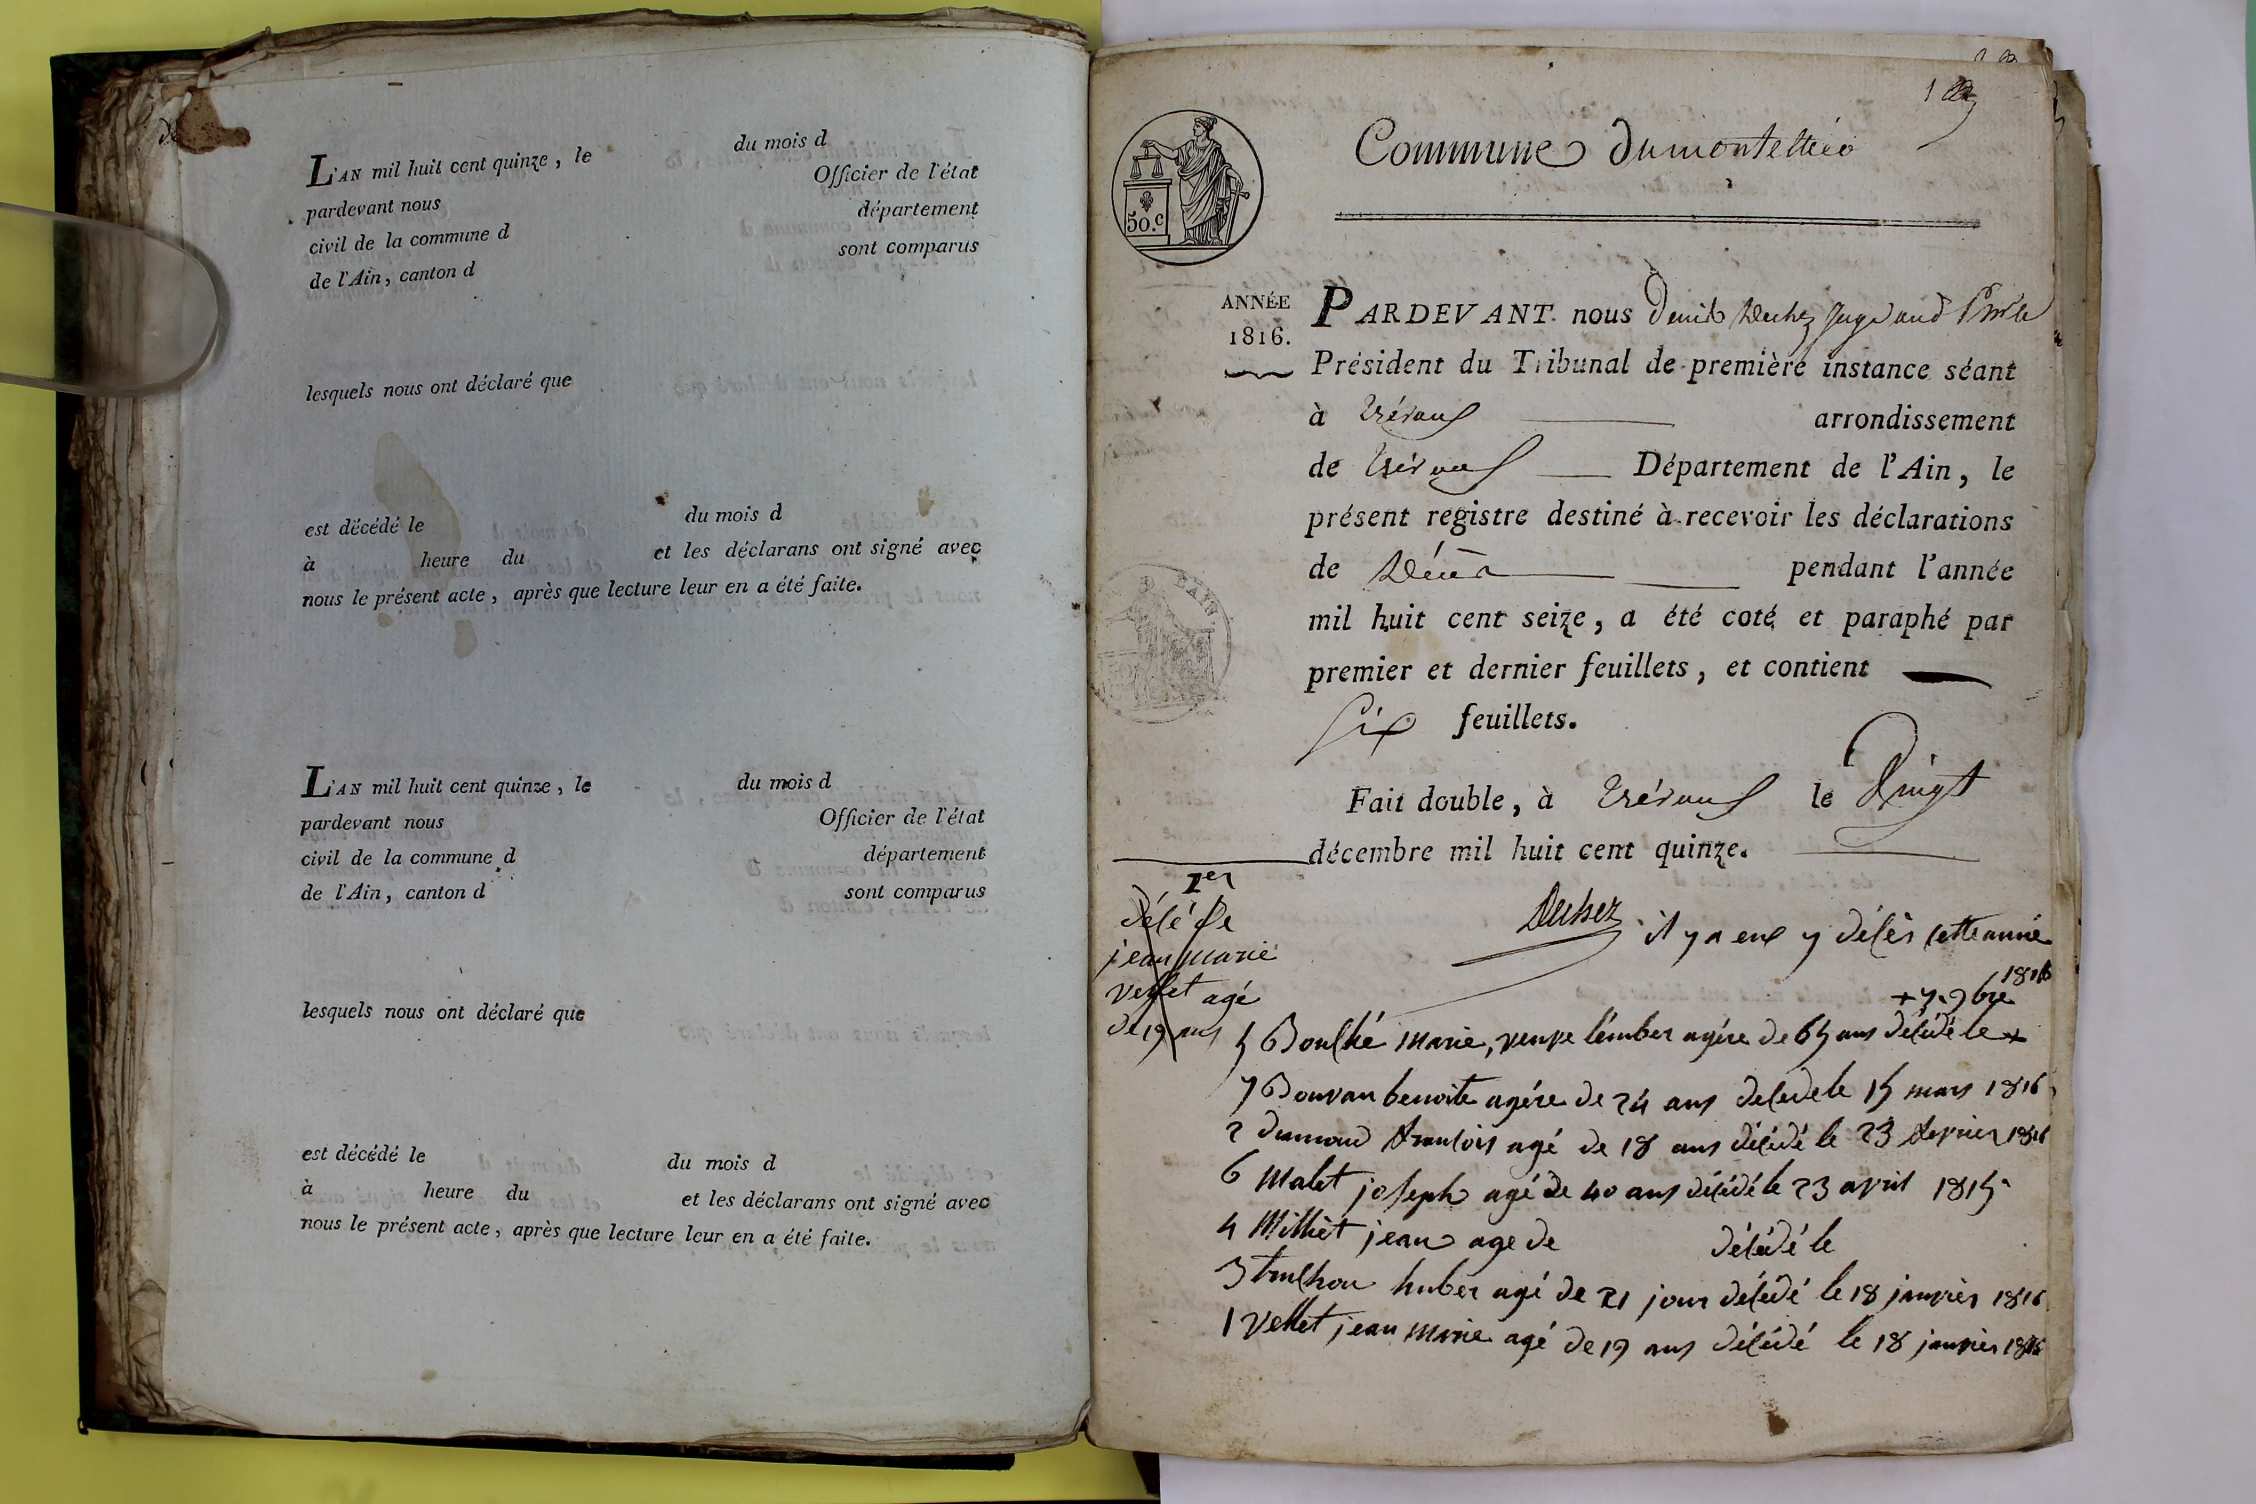 L'AN mil huit cent quinze, le du mois d
pardevant nous Officier de l'état
civil de la commune d département
de l'Ain, canton d sont comparus
lesquels nous ont déclaré que
est décédé le du mois d
à heure du et les déclarans ont signé avec
nous le présent acte, après que lecture leur en a été faite.
L'AN mil huit cent quinze, le du mois d
pardevant nous Officier de l'état
civil de la commune d département
de l'Ain, canton d sont comparus
lesquels nous ont déclaré que
est décédé le du mois d
à heure du et les déclarans ont signé avec
nous le présent acte, après que lecture leur en a été faite.
1
Commune dumontellier
50.c
ANNÉE
1816.
PARDEVANT nous Denis Duhez Juge
Président du Tribunal de première instance séant
à trévoux arrondissement
de trévoux Département de l'Ain, le
présent registre destiné à recevoir les déclarations
de Décès pendant l'année
mil huit cent seize, a été coté et paraphé par
premier et dernier feuillets, et contient
Six feuillets.
Fait double, à trévoux le Vingt
décembre mil huit cent quinze.
1er
décé de
jean marie
vellet agé
de 19 ans
Duhez
il y a eux 7 délès cette année
1816
+ 7.9bre
5 Boulhé marie, veuve lember agére de 65 ans délédé le +
7 Bouvan benoite agére de 24 ans deledele 15 mars 1816
2 dumond franlois agé de 18 ans délédé le 23 fevrier 1816
6 Malet joseph agé de 40 ans délédé le 23 avril 1815
4 Milliet jean age de délédé le
3 trulhon huber agé de 21 jour délédé le 18 janvier 1816
1 vellet jean marie agé de 19 ans délédé le 18 janvier 1816